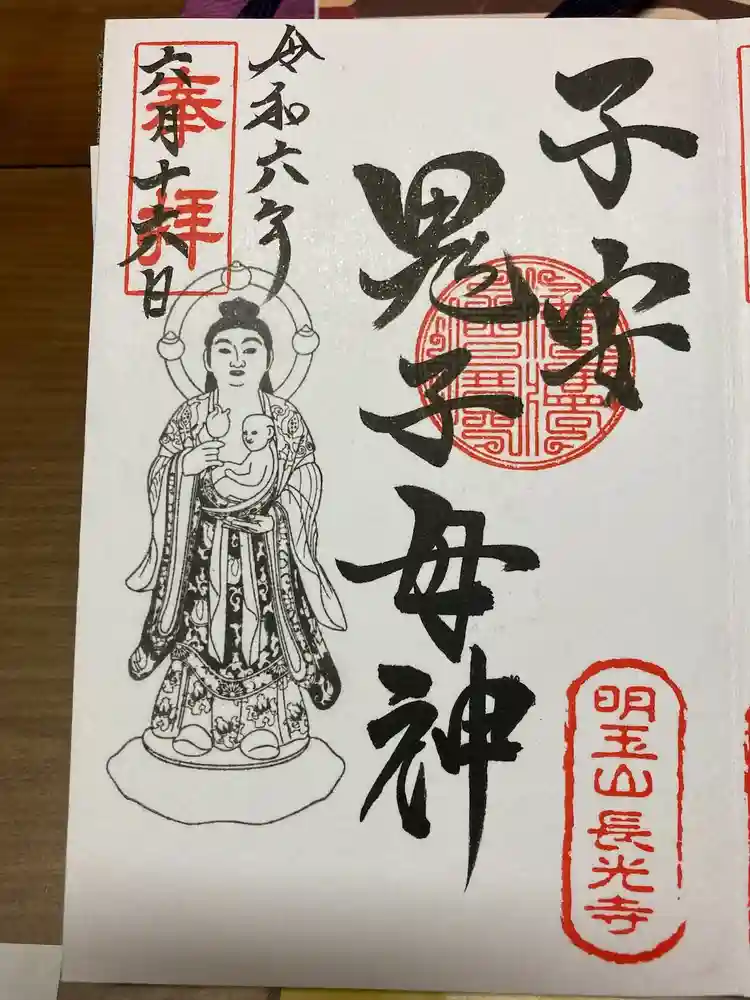 子安
鬼子母神
令和六年
六月十六日
奉拝
明玉山長光寺